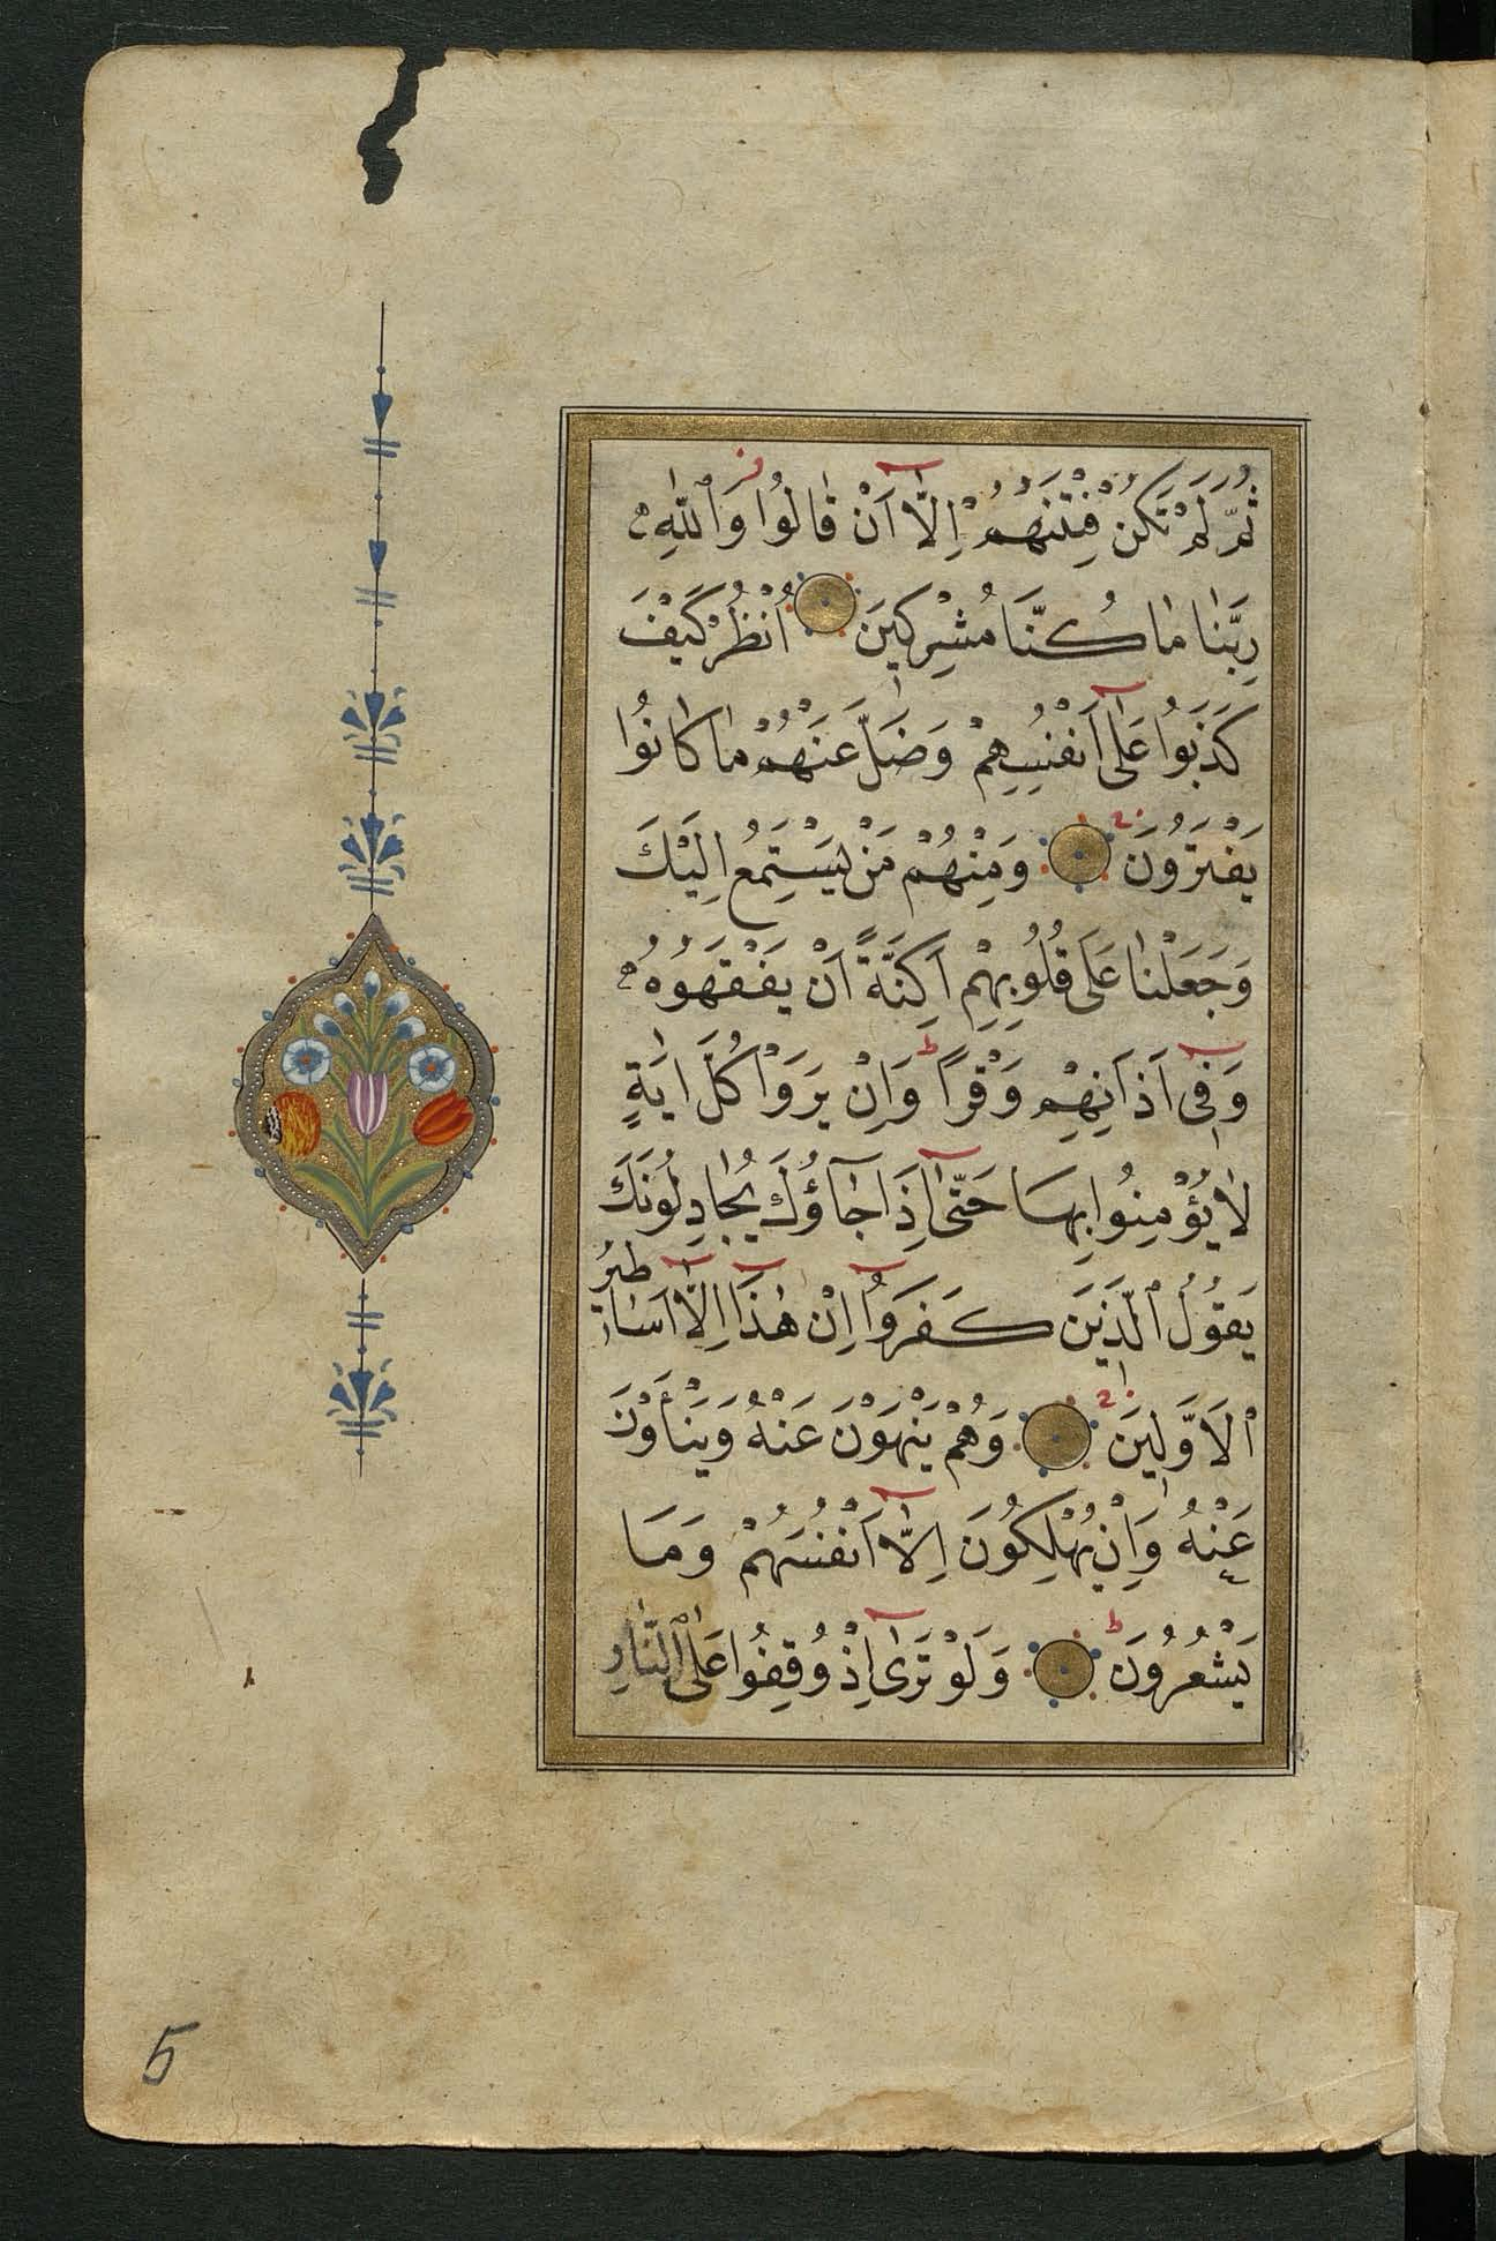 ثُمَّ لَمْ تَكُنْ فِتْنَتُهُمْ اِلَّٓا اَنْ قَالُوا وَٱللّٰهِ
رَبِّنَا مَا كُنَّا مُشْرِكِينَ اُنْظُرْ كَيْفَ
كَذَبُوا عَلٰٓى اَنْفُسِهِمْ وَضَلَّ عَنْهُمْ مَا كَانُوا
يَفْتَرُونَ وَمِنْهُمْ مَنْ يَسْتَمِعُ اِلَيْكَ
وَجَعَلْنَا عَلٰى قُلُوبِهِمْ اَكِنَّةً اَنْ يَفْقَهُوهُ
وَفِٓى اٰذَانِهِمْ وَقْرًا ط وَاِنْ يَرَوْا كُلَّ اٰيَةٍ
لَا يُؤْمِنُوا بِهَا حَتّٰٓى اِذَا جَآؤُكَ يُجَادِلُونَكَ
يَقُولُ ٱلَّذِينَ كَفَرُوٓا اِنْ هٰذَٓا اِلَّٓا اَسَاطِيرُ
ٱلْاَوَّلِينَ وَهُمْ يَنْهَوْنَ عَنْهُ وَيَنْأَوْنَ
عَنْهُ وَاِنْ يُهْلِكُونَ اِلَّٓا اَنْفُسَهُمْ وَمَا
يَشْعُرُونَ ط وَلَوْ تَرٰٓى اِذْ وُقِفُوا عَلَى ٱلنَّارِ
5